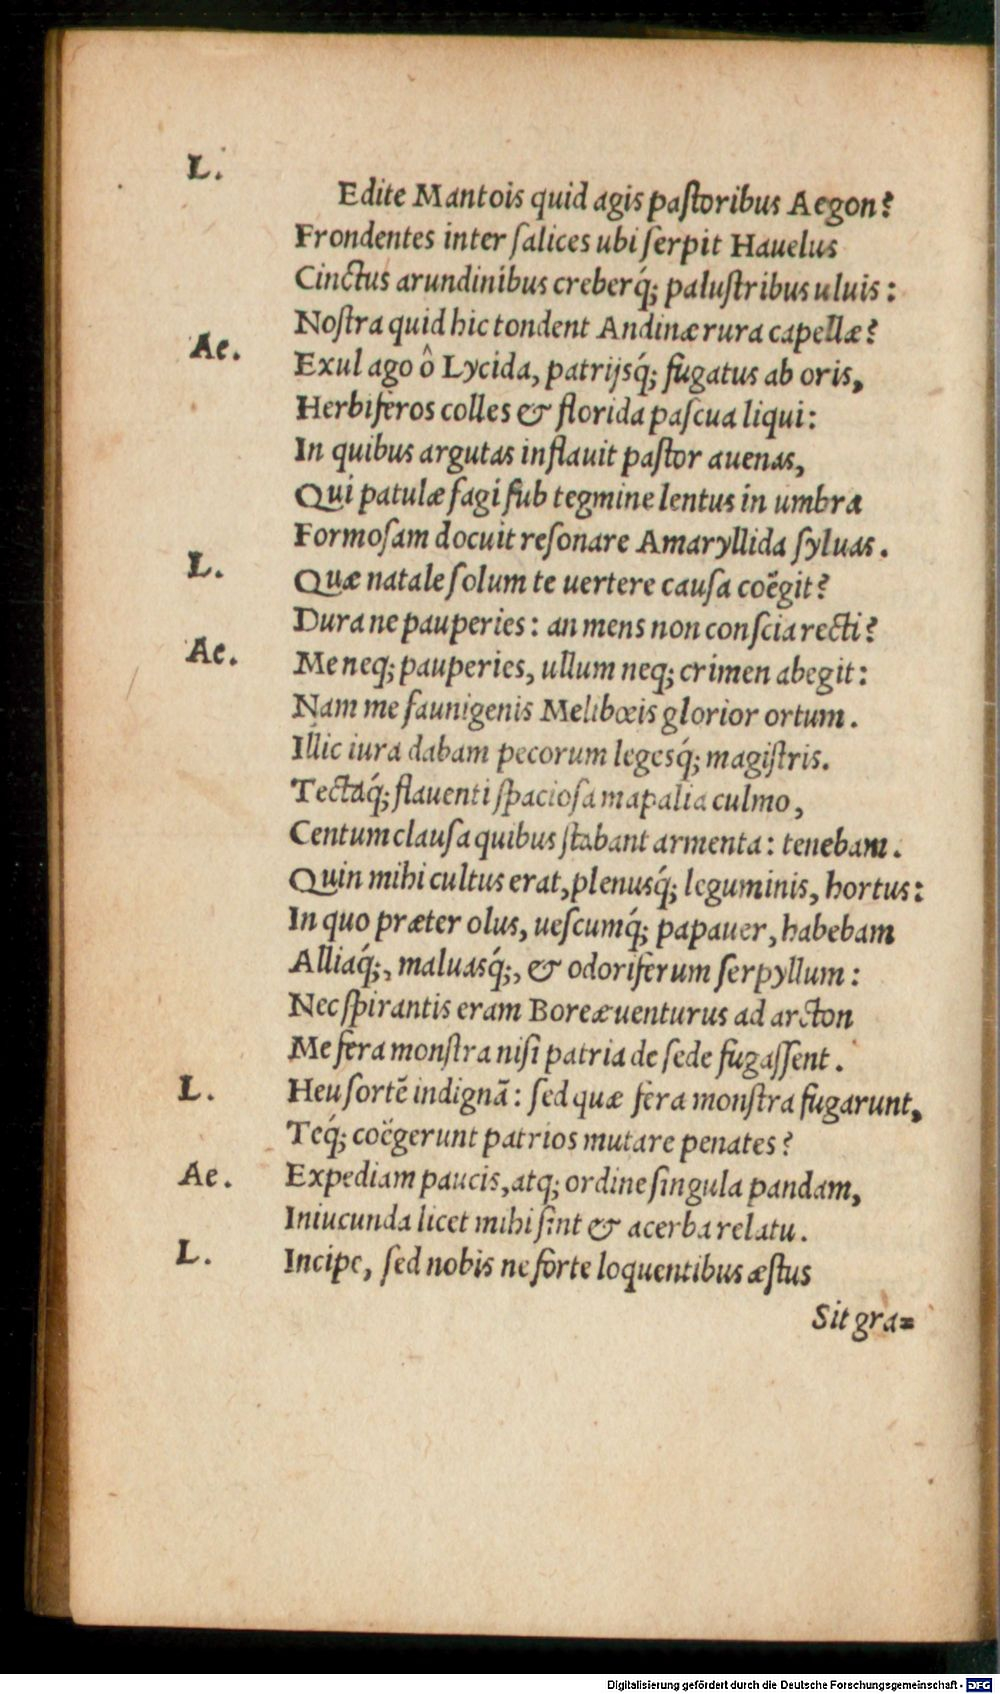 L.
Edite Mantois quid agis paſtoribus Aegon?
Frondentes inter ſalices ubi ſerpit Hauelus
Cinctus arundinibus creberq́; paluſtribus uluis:
Noſtra quid hic tondent Andinæ rura capellæ?
Ae. Exul ago ô Lycida, patrijsq́; fugatus ab oris,
Herbiferos colles & florida paſcua liqui:
In quibus argutas inflauit paſtor auenas,
Qui patulæ fagi ſub tegmine lentus in umbra
Formoſam docuit reſonare Amaryllida ſyluas.
L. Quæ natale ſolum te uertere cauſa coëgit?
Dura ne pauperies: an mens non conſcia recti?
Ae. Me neq; pauperies, ullum neq; crimen abegit:
Nam me faunigenis Melibœis glorior ortum.
Illic iura dabam pecorum legesq́; magiſtris.
Tectaq́; flauenti ſpacioſa mapalia culmo,
Centum clauſa quibus ſtabant armenta: tenebam.
Quin mihi cultus erat, plenusq́; leguminis, hortus:
In quo præter olus, ueſcumq́; papauer, habebam
Alliaq́;, maluasq́;, & odoriferum ſerpyllum:
Nec ſpirantis eram Boreæ uenturus ad arcton
Me fera monſtra niſi patria de ſede fugaſſent.
L. Heu ſortē indignā: ſed quæ fera monſtra fugarunt,
Teq́; coëgerunt patrios mutare penates?
Ae. Expediam paucis, atq; ordine ſingula pandam,
Iniucunda licet mihi ſint & acerba relatu.
L. Incipe, ſed nobis ne forte loquentibus æſtus
Sit gra=
Digitalisierung gefördert durch die Deutsche Forschungsgemeinschaft - DFG